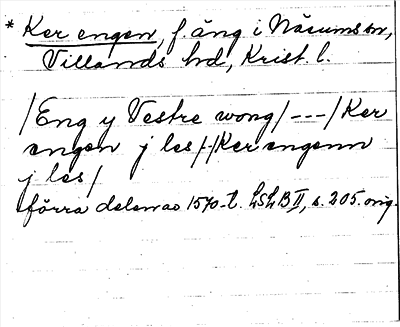 * Ker engen, f. äng i Näsums sn,
Villands hd, Krist. l.
/Eng y Vestre wong/---/Ker
engen j les/-/Ker engenn
j les/
förra delen av 1570-t. LSLB II, s. 205. orig.